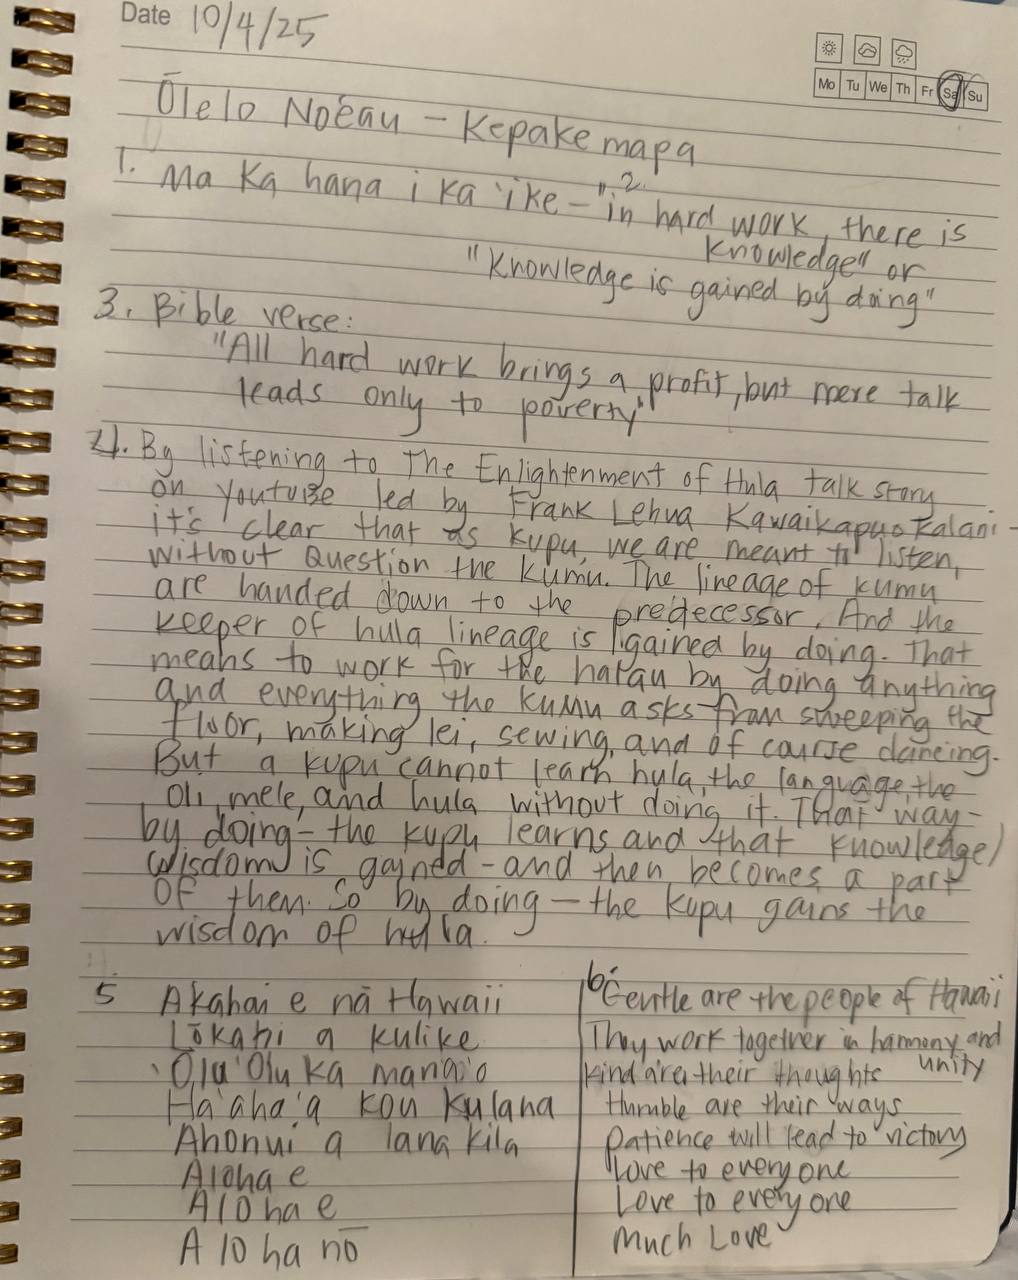 Date 10/4/25
Mo Tu We Th Fr Sa Su
Ōlelo Noéau - Kepakemapa
1. Ma Ka hana i ka 'ike - "2. in hard work, there is
knowledge" or
"Knowledge is gained by doing"
3. Bible verse:
"All hard work brings a profit, but mere talk
leads only to poverty"
4. By listening to The Enlightenment of Hula talk story
on youtube led by Frank Lehua Kawaikapuokalani -
it's clear that as kupu, we are meant to listen,
without question the kumu. The lineage of kumu
are handed down to the predecessor. And the
keeper of hula lineage is gained by doing. That
means to work for the halau by doing anything
and everything the kumu asks from sweeping the
floor, making lei, sewing, and of course dancing.
But a kupu cannot learn hula, the language, the
oli, mele, and hula without doing it. That way -
by doing - the kupu learns and that knowledge/
wisdom is gained - and then becomes a part
of them. So by doing - the kupu gains the
wisdom of hula.
5 Akahai e nā Hawaii
Lōkahi a kulike
'Olu'Olu ka mana'o
Ha'aha'a kou kulana
Ahonui a lanakila
Aloha e
Aloha e
Aloha nō
6 Gentle are the people of Hawaii
They work together in harmony and
unity
Kind are their thoughts
Humble are their ways
Patience will lead to victory
Love to everyone
Love to everyone
Much Love